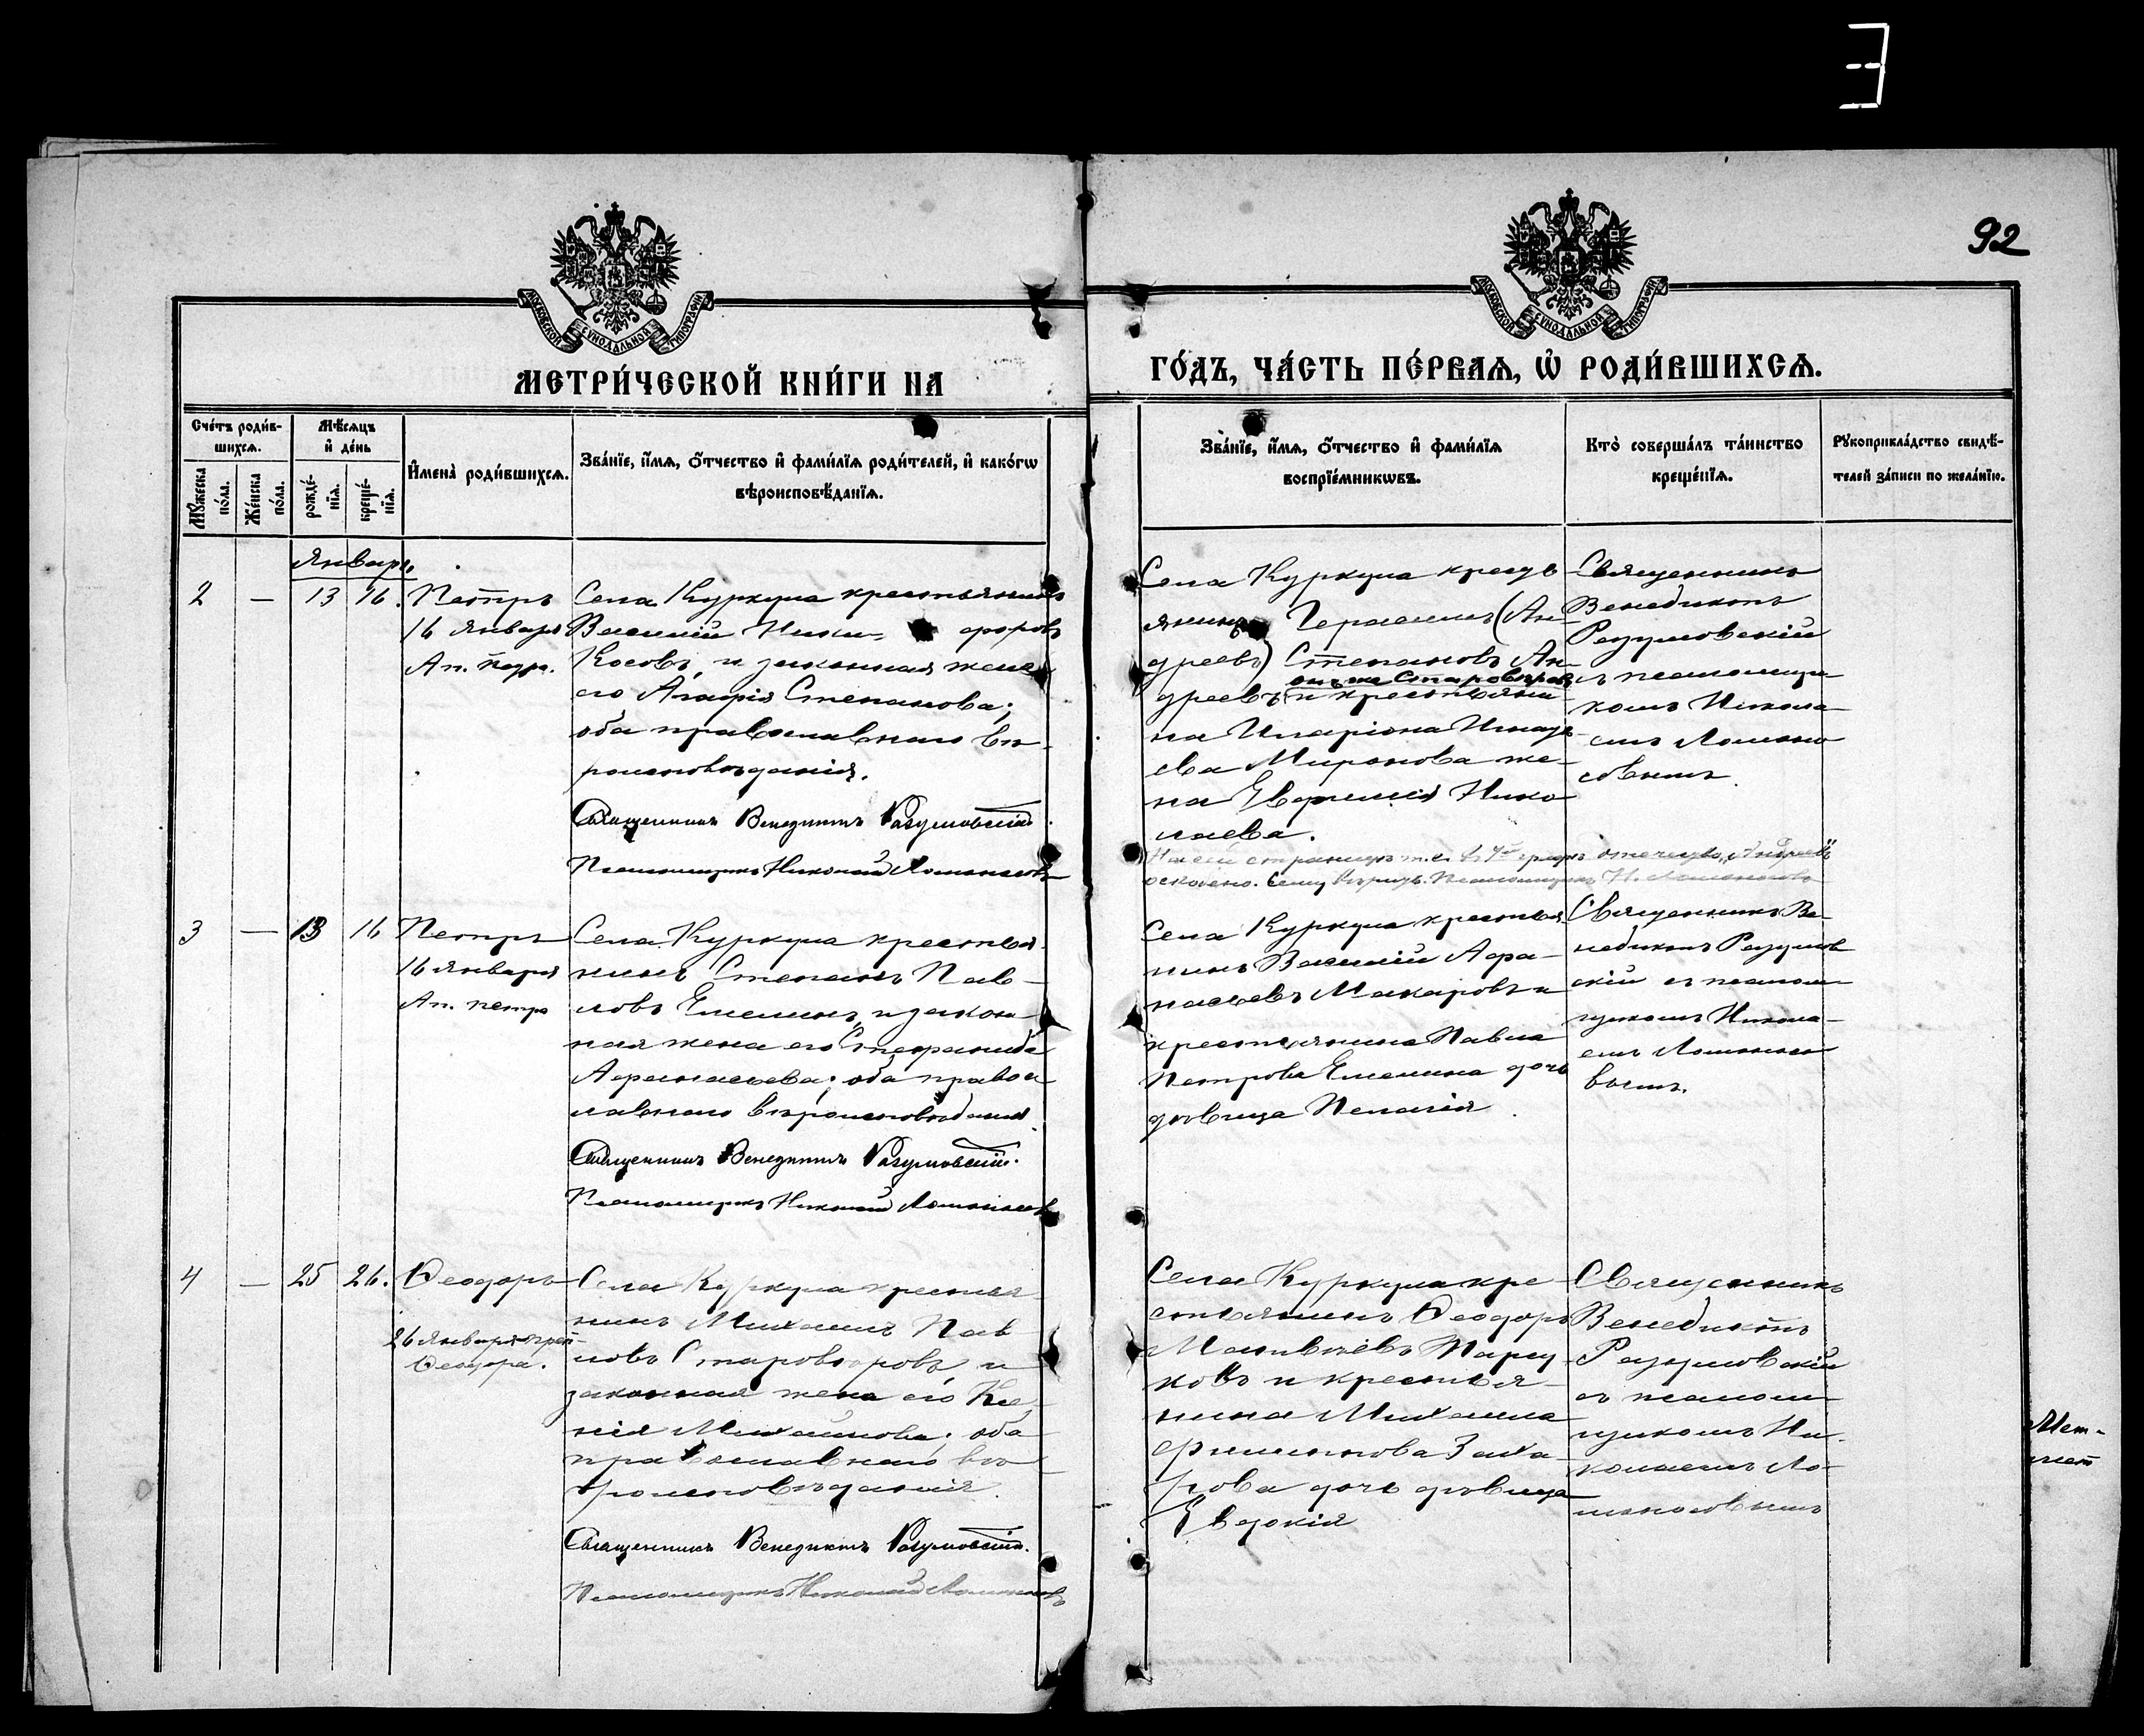 92
МОСКОВСКОЙ СѴНОДАЛЬНОЙ ТИПОГРАФІИ
МОСКОВСКОЙ СѴНОДАЛЬНОЙ ТИПОГРАФІИ
МЕТРИ́ЧЕСКОЙ КНИ́ГИ НА
ГО́ДЪ, ЧА́СТЬ ПЕ́РВАѦ, Ѡ РОДИ́ВШИХСѦ.
Сче́тъ роди́в-
шихсѧ.
Мꙋжеска по́ла.
Же́нска по́ла.
Мѣ́сѧцъ
и҆ де́нь
рожде́-
нїѧ.
креще́-
нїѧ.
И҆мена̀ роди́вшихсѧ.
Зва́нїе, и҆́мѧ, ѻ҆́тчество и҆ фами́лїѧ роди́телей, и҆ како́гѡ
вѣроисповѣ́данїѧ.
Зва́нїе, и҆́мѧ, ѻ҆́тчество и҆ фами́лїѧ
воспрїе́мникѡвъ.
Кто̀ соверша́лъ та́инство
креще́нїѧ.
Рꙋкоприкла́дство свидѣ́-
телей за́писи по жела́нїю.
Январь
2 — 13 16. Петръ
16 Января
Ап. Петра.
Села Куркула крестьянинъ
Василій Ники- форовъ
Косовъ и законная жена
его Агафія Степанова;
оба православнаго вѣ-
роисповѣданія.
Священникъ Венедиктъ Разумовскій.
Псаломщикъ Николай Ломоносовъ
Села Куркула кресть
янинъ Герасимъ (Ан-
дреевъ) Степановъ Ан-
онъ же Староверовъ
дреевъ и крестьяни
на Иларіона Игнать
ева Миронова же-
на Евфимія Нико
лаева.
На сей страницѣ т.е. въ 4й графѣ отечество „Андреевъ"
оскоблено. Сему вѣрить. Псаломщикъ Н. Ломоносовъ
Священникъ
Венедиктъ
Разумовскій
съ псаломщи
комъ Никола-
емъ Ломоно
совымъ.
3 — 13 16 Петръ
16 Января
Ап. Петра
Села Куркула крестья-
нинъ Степанъ Пав-
ловъ Емелинъ и закон-
ная жена его Стефанида
Афанасьева; оба правос
лавнаго вѣроисповѣданія.
Священникъ Венедиктъ Разумовскій.
Псаломщикъ Николай Ломоносовъ
Села Куркула крестья
нинъ Василій Афа-
насьевъ Макаровъ и
крестьянина Павла
Петрова Емелина дочь
дѣвица Пелагія.
Священникъ Ве-
недиктъ Разумов
скій съ псалом-
щикомъ Никола-
емъ Ломоносо
вымъ.
4 — 25 26. Ѳеодоръ
26 Января преп.
Ѳеодора.
Села Куркула крестья
нинъ Михаилъ Пав
ловъ Староверовъ и
законная жена его Ксе-
нія Михаилова; оба
православнаго вѣ-
роисповѣданія.
Священникъ Венедиктъ Разумовскій.
Псаломщикъ Николай Ломоносовъ
Села Куркула кре-
стьянинъ Ѳеодоръ
Матвѣевъ
ковъ и крестья-
нина Михаила
Филиппова Заха-
рова дочь дѣвица
Евдокія
Священникъ
Венедиктъ
Разумовскій
съ псалом-
щикомъ Ни-
колаемъ Ло-
моносовымъ